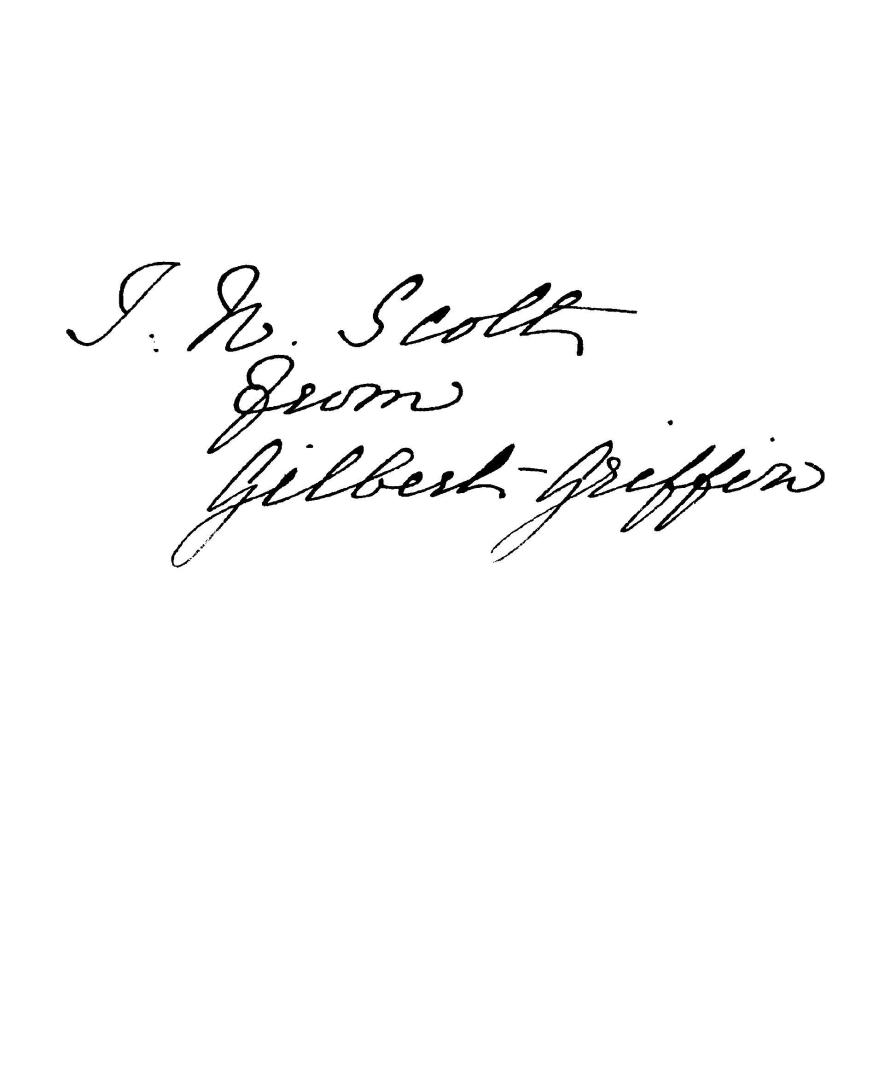 J. N. Scott
from
Gilbert Griffin